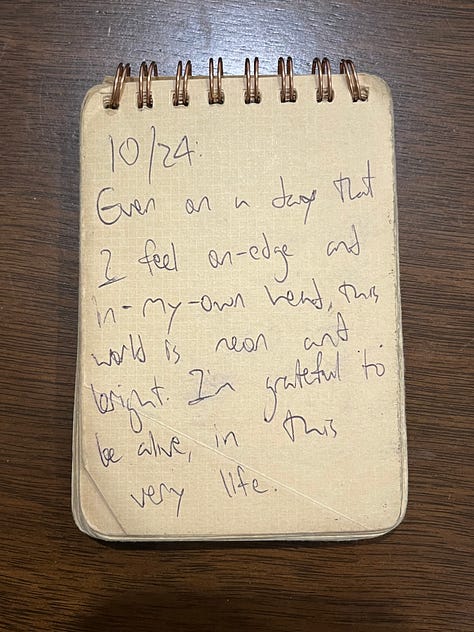 10/24:
Even on a day that
I feel on-edge and
in-my-own head, this
world is neon and
bright. I'm grateful to
be alive, in this
very life.